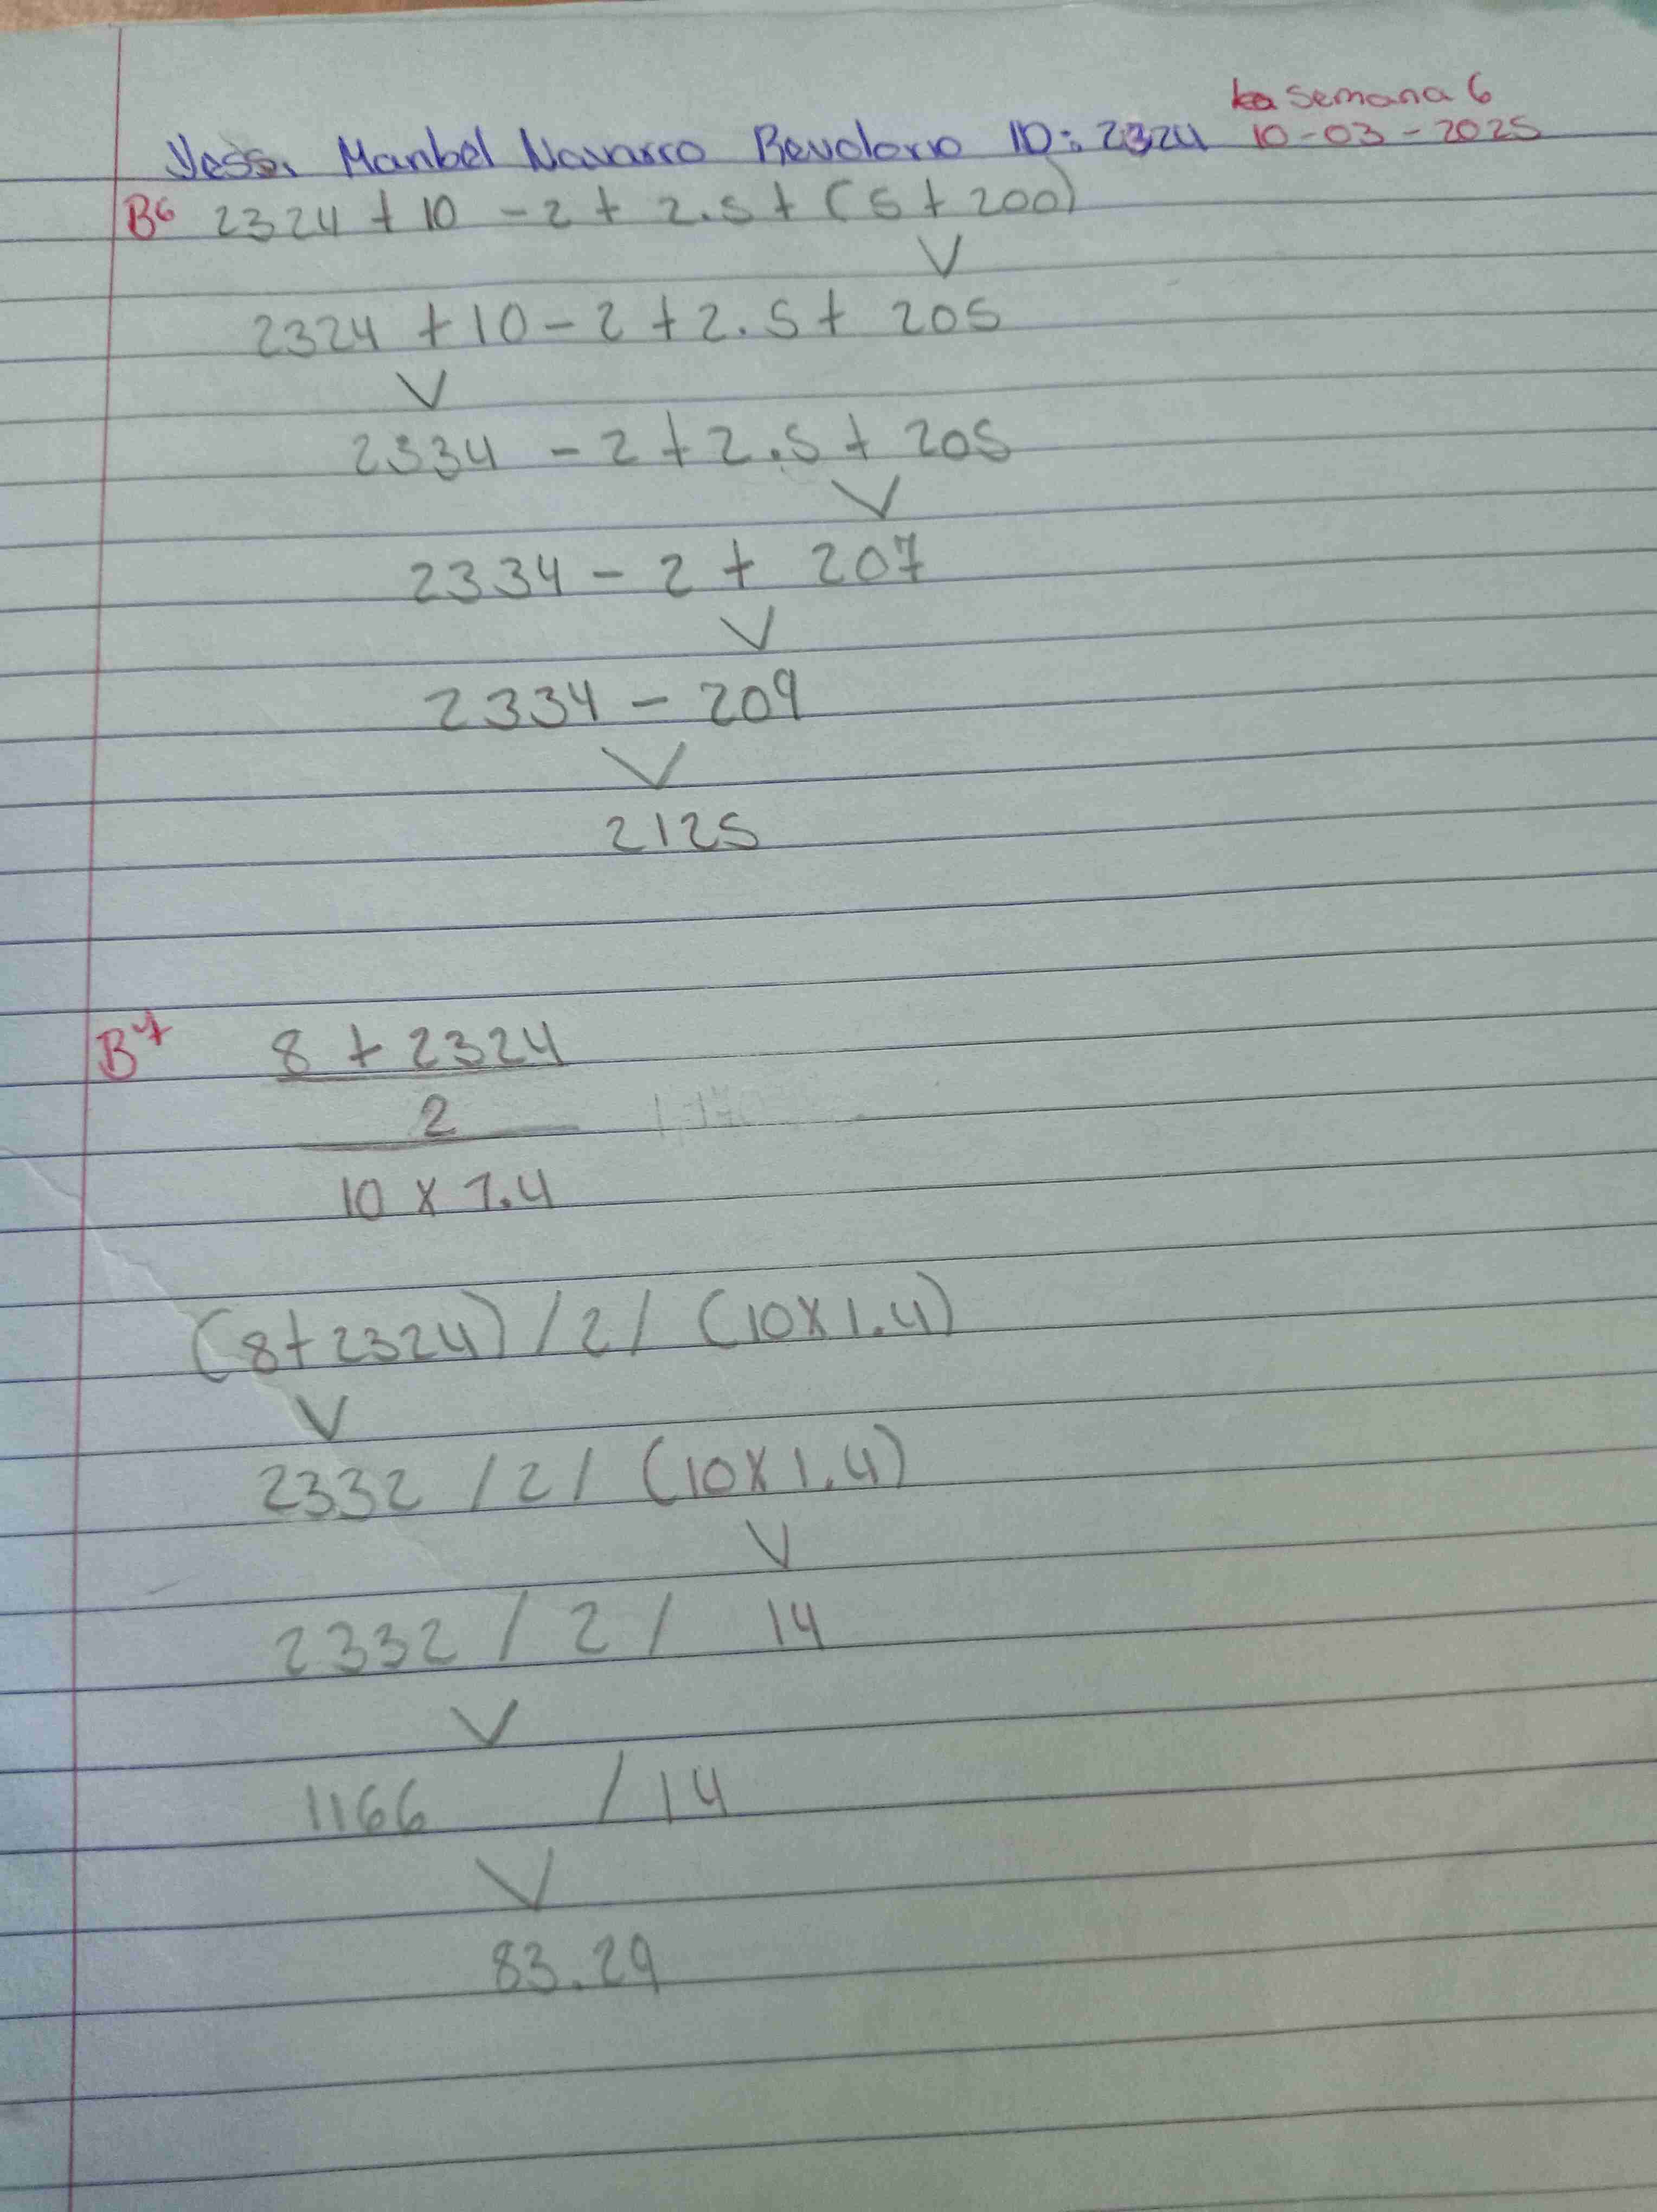 semana 6
Yess. Maribel Navarro Revolorio ID: 2324 10-03-2025
B6 2324 + 10 - 2 + 2.5 + (5 + 200)
2324 + 10 - 2 + 2.5 + 205
2334 - 2 + 2.5 + 205
2334 - 2 + 207
2334 - 209
2125
B7 8 + 2324
2
10 x 1.4
(8+2324) / 2 / (10x1.4)
2332 / 2 / (10x1.4)
2332 / 2 / 14
1166 / 14
83.29